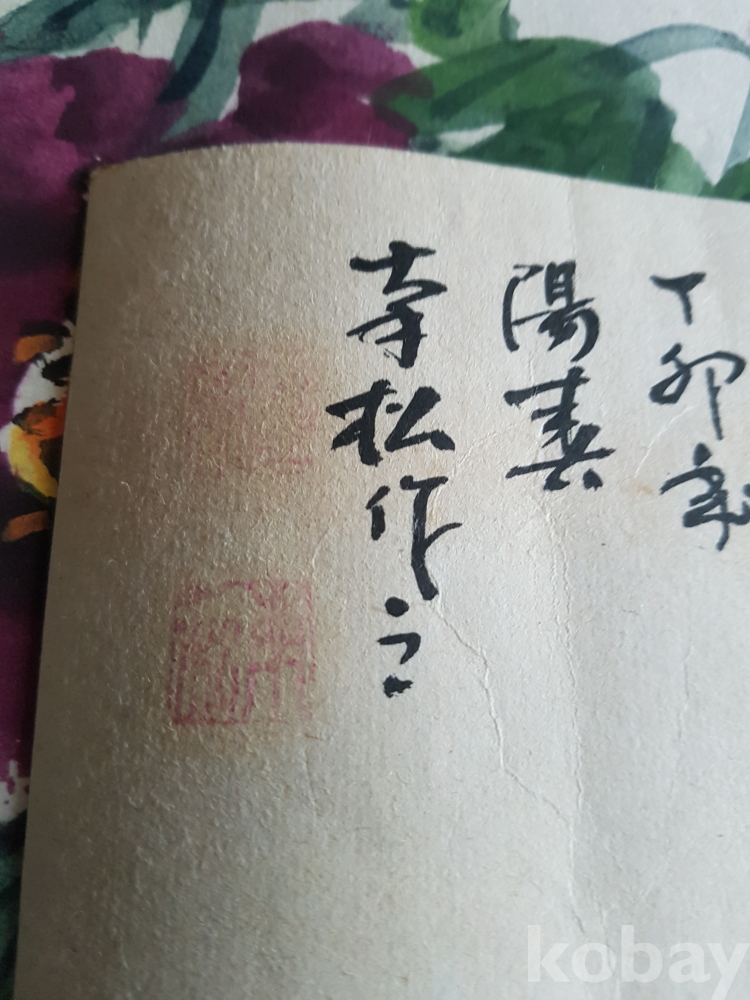 丁卯
陽春
松作之
kobay